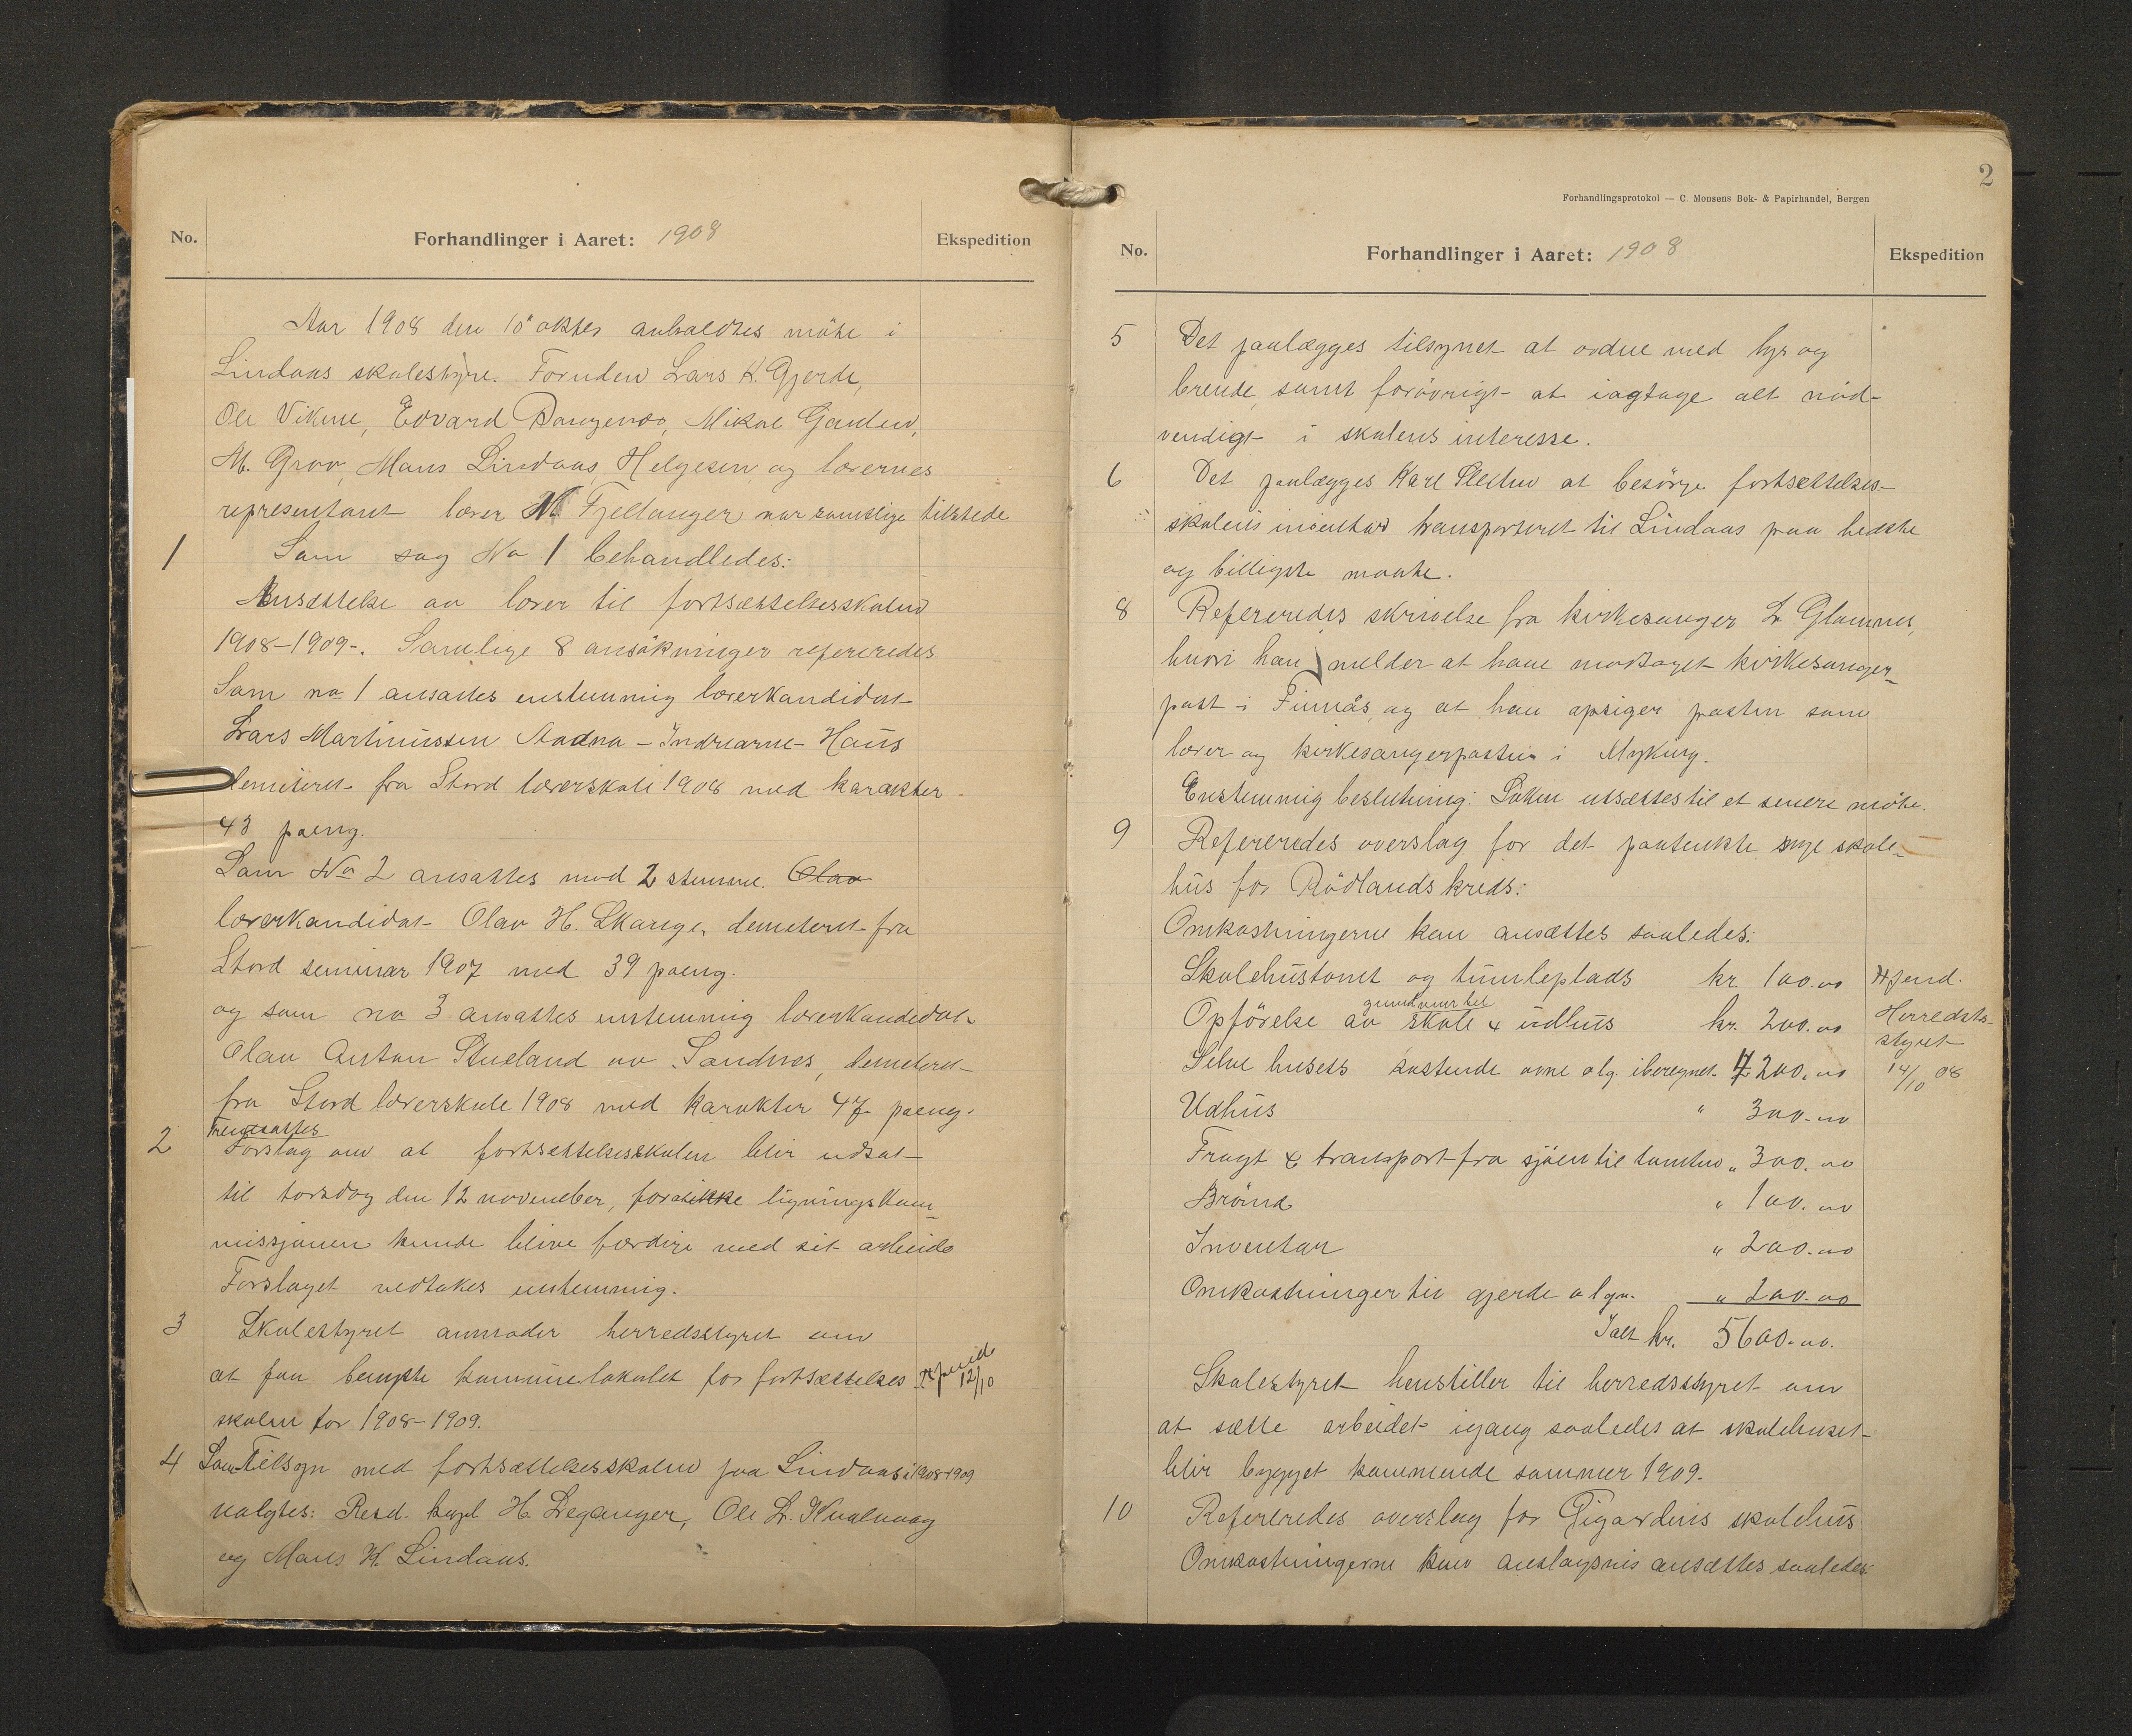 No.
Forhandlinger i Aaret: 1908
Ekspedition
Aar 1908 den 10 oktbr anholdtes möte i
Lindaas skolestyre. Foruden Lars K. Gjerde,
Ole Vikne, Edvard Mikal
M. Mans Lindaas, Helgesen og lærernes
representant lærer N Fjellanger var samtlige tilstede
1 Som sag No 1 behandledes:
Ansættelse av lærer til fortsættelsesskolen
1908-1909-. Samlige 8 ansökninger refereredes
Som no 1 ansattes enstemmig lærerkandidat
Lars Martinussen Aadna - Indrearne - Haus
demiteret fra Stord lærerskole 1908 med karakter
43 poeng.
Som No 2 ansattes med 2 stemme. Olav
lærerkandidat Olav H. Skarge, demiteret fra
Stord seminar 1907 med 39 poeng.
og som no 3 ansattes enstemmig lærerkandidat
Olav Anton Stueland av Sandnes, demiteret
fra Stord lærerskole 1908 med karakter 47 poeng.
Fremsattes
2 Forslag om at fortsættelsesskolen blir udsat
til torsdag den 12 november, forat ikke ligningskom-
missjonen kunde blive færdige med sit arbeide
Forslaget vedtakes enstemmig.
3 Skolestyret anmoder herredsstyret om
at faa benytte kommunelokalet for fortsættelses
12/10
skolen for 1908-1909.
4 Som Tilsyn med fortsættelsesskolen paa Lindaas i 1908-1909
valgtes: Resd. kapl H. Leganger, Ole L. Kvalvaag
og Mans H. Lindaas.
2
Forhandlingsprotokol — C. Monsens Bok- & Papirhandel, Bergen
No.
Forhandlinger i Aaret: 1908
Ekspedition
5 Det paalægges tilsynet at ordne med lys og
brende, samt forövrigt at iagtage alt nöd-
vendigt i skolens interesse.
6 Det paalægges Karl at besörge fortsættelses-
skolens inventar transporteret til Lindaas paa bedste
og billigste maate.
8 Refereredes skrivelse fra kirkesanger L. Glamnes,
hvori han melder at have modtaget kirkesanger-
post i Finnås, og at han opsiger posten som
lærer og kirkesangerposten i Myking.
Enstemmig beslutning: Saken utsættes til et senere möte.
9 Refereredes overslag for det paatenkte nye skole-
hus for Rödlands kreds:
Omkostningerne kan ansættes saaledes:
Skolehustomt og tumleplads kr 100.00
grundmur til
Opförelse av skole & udhus kr. 200.00
Herreds-
styret
Selve husets kostende ovne olg. iberegnet. 4200.00
14/10 08
Udhus " 300.00
Fragt & transport fra sjöen til tomten " 300.00
Brönd " 100.00
Inventar " 200.00
Omkostninger til gjerde olgn. " 200.00
Ialt kr. 5600.00.
Skolestyret henstiller til herredsstyret om
at sætte arbeidet igang saaledes at skolehuset
blir bygget kommende sommer 1909.
10 Refereredes overslag for skolehus
Omkostningerne kan anslagsvis ansættes saaledes: